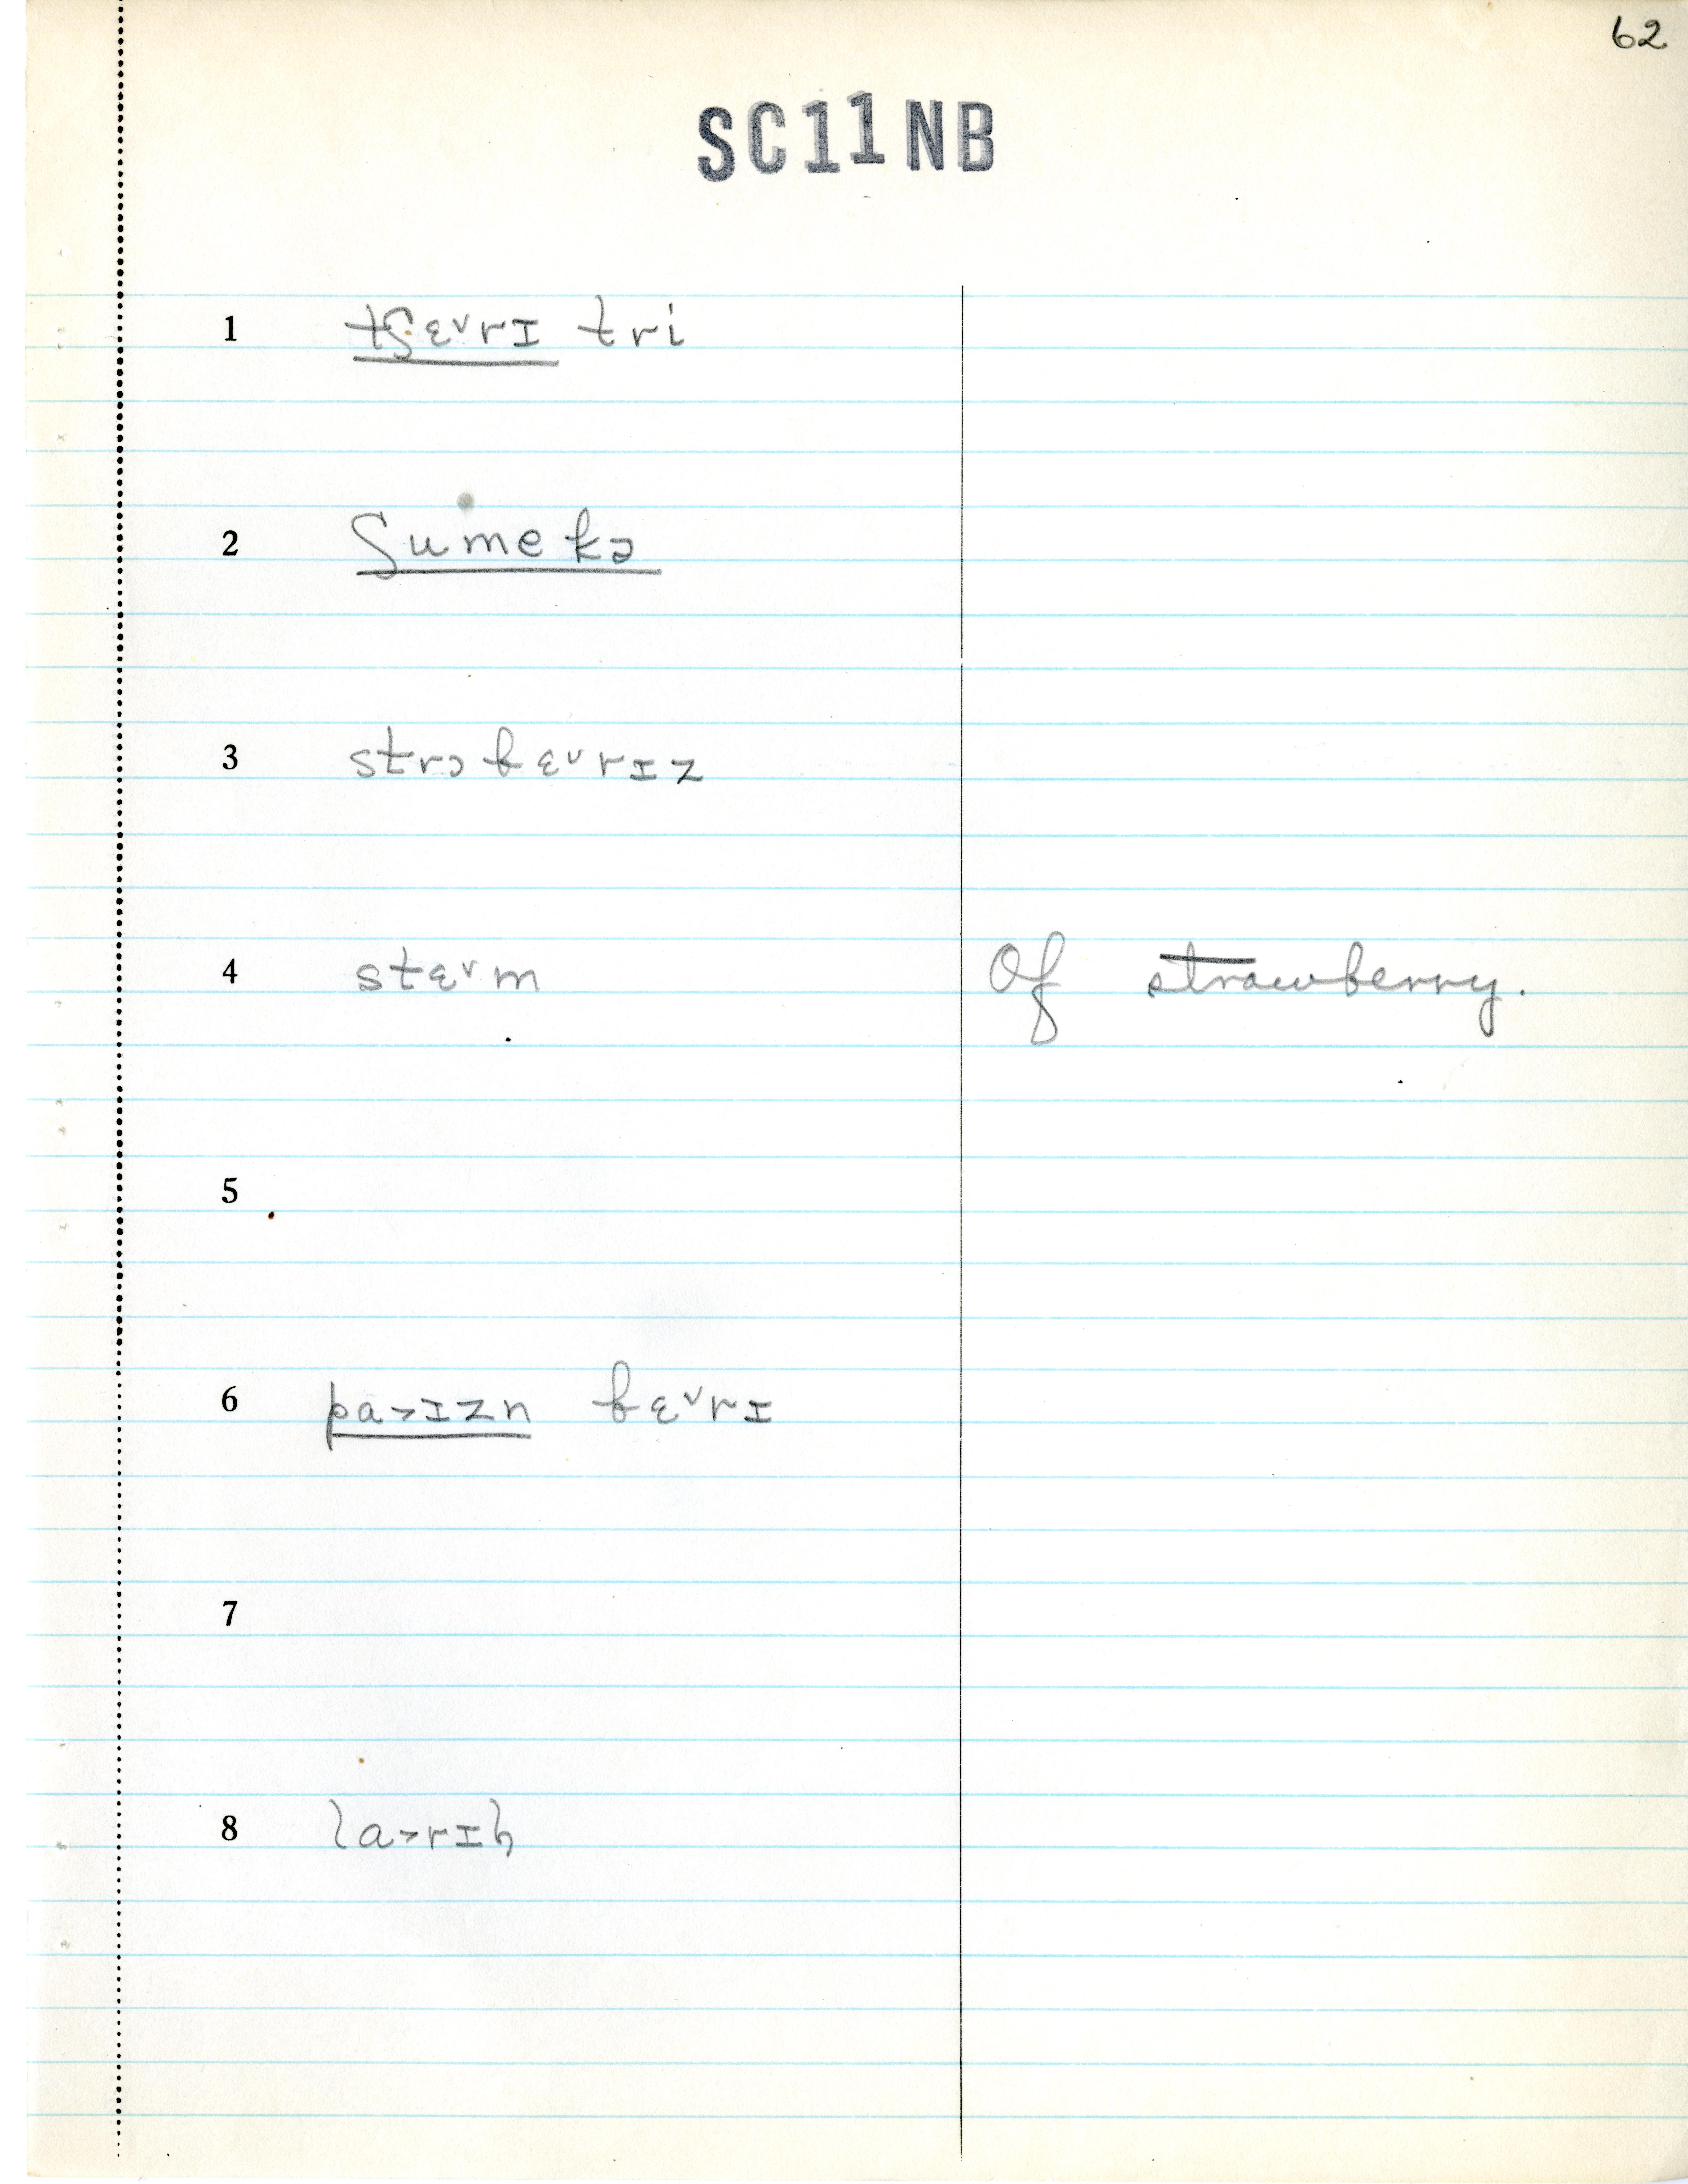 62
SC11NB
1 tʃɛ˅rɪ tri
2 ʃumekə
3 strɔbɛ˅rɪz
4 stɛ˅m Of strawberry.
5
6 pa˃ɪzn bɛ˅rɪ
7
8 la˃rɪh